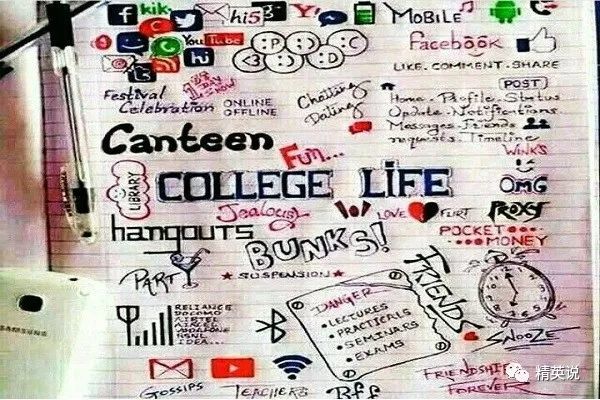 kik
hi5
Y!
MOBILE
f
You Tube
hi
:P :D :C
facebook
LIKE. COMMENT. SHARE
Festival
Celebration
ONLINE
OFFLINE
Chatting
Dating
POST
Home. Profile. Status
Update. Notifications.
Messages. Friends
requests. Timeline
WINKS
Canteen
Fun...
LIBRARY
COLLEGE LIFE
OMG
Jealousy
LOVE
FLIRT
PROXY
hangouts
BUNKS!
POCKET
MONEY
PARTY
SUSPENSION
FRIENDS
DANGER
LECTURES
PRACTICALS
SEMINARS
EXAMS
RELIANCE
DOCOMO
AIRTEL
AIRCEL
VODAFONE
IDEA...
SNOOZE
SAMSUNG
GOSSIPS
TEACHERS
Bff
FRIENDSHIP
FOREVER
精英说